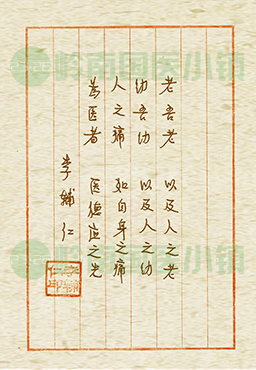 老吾老 以及人之老
幼吾幼 以及人之幼
人之痛 如自身之痛
為医者 医德应之先
李辅仁
李辅仁印
岭南国医小镇
岭南国医小镇